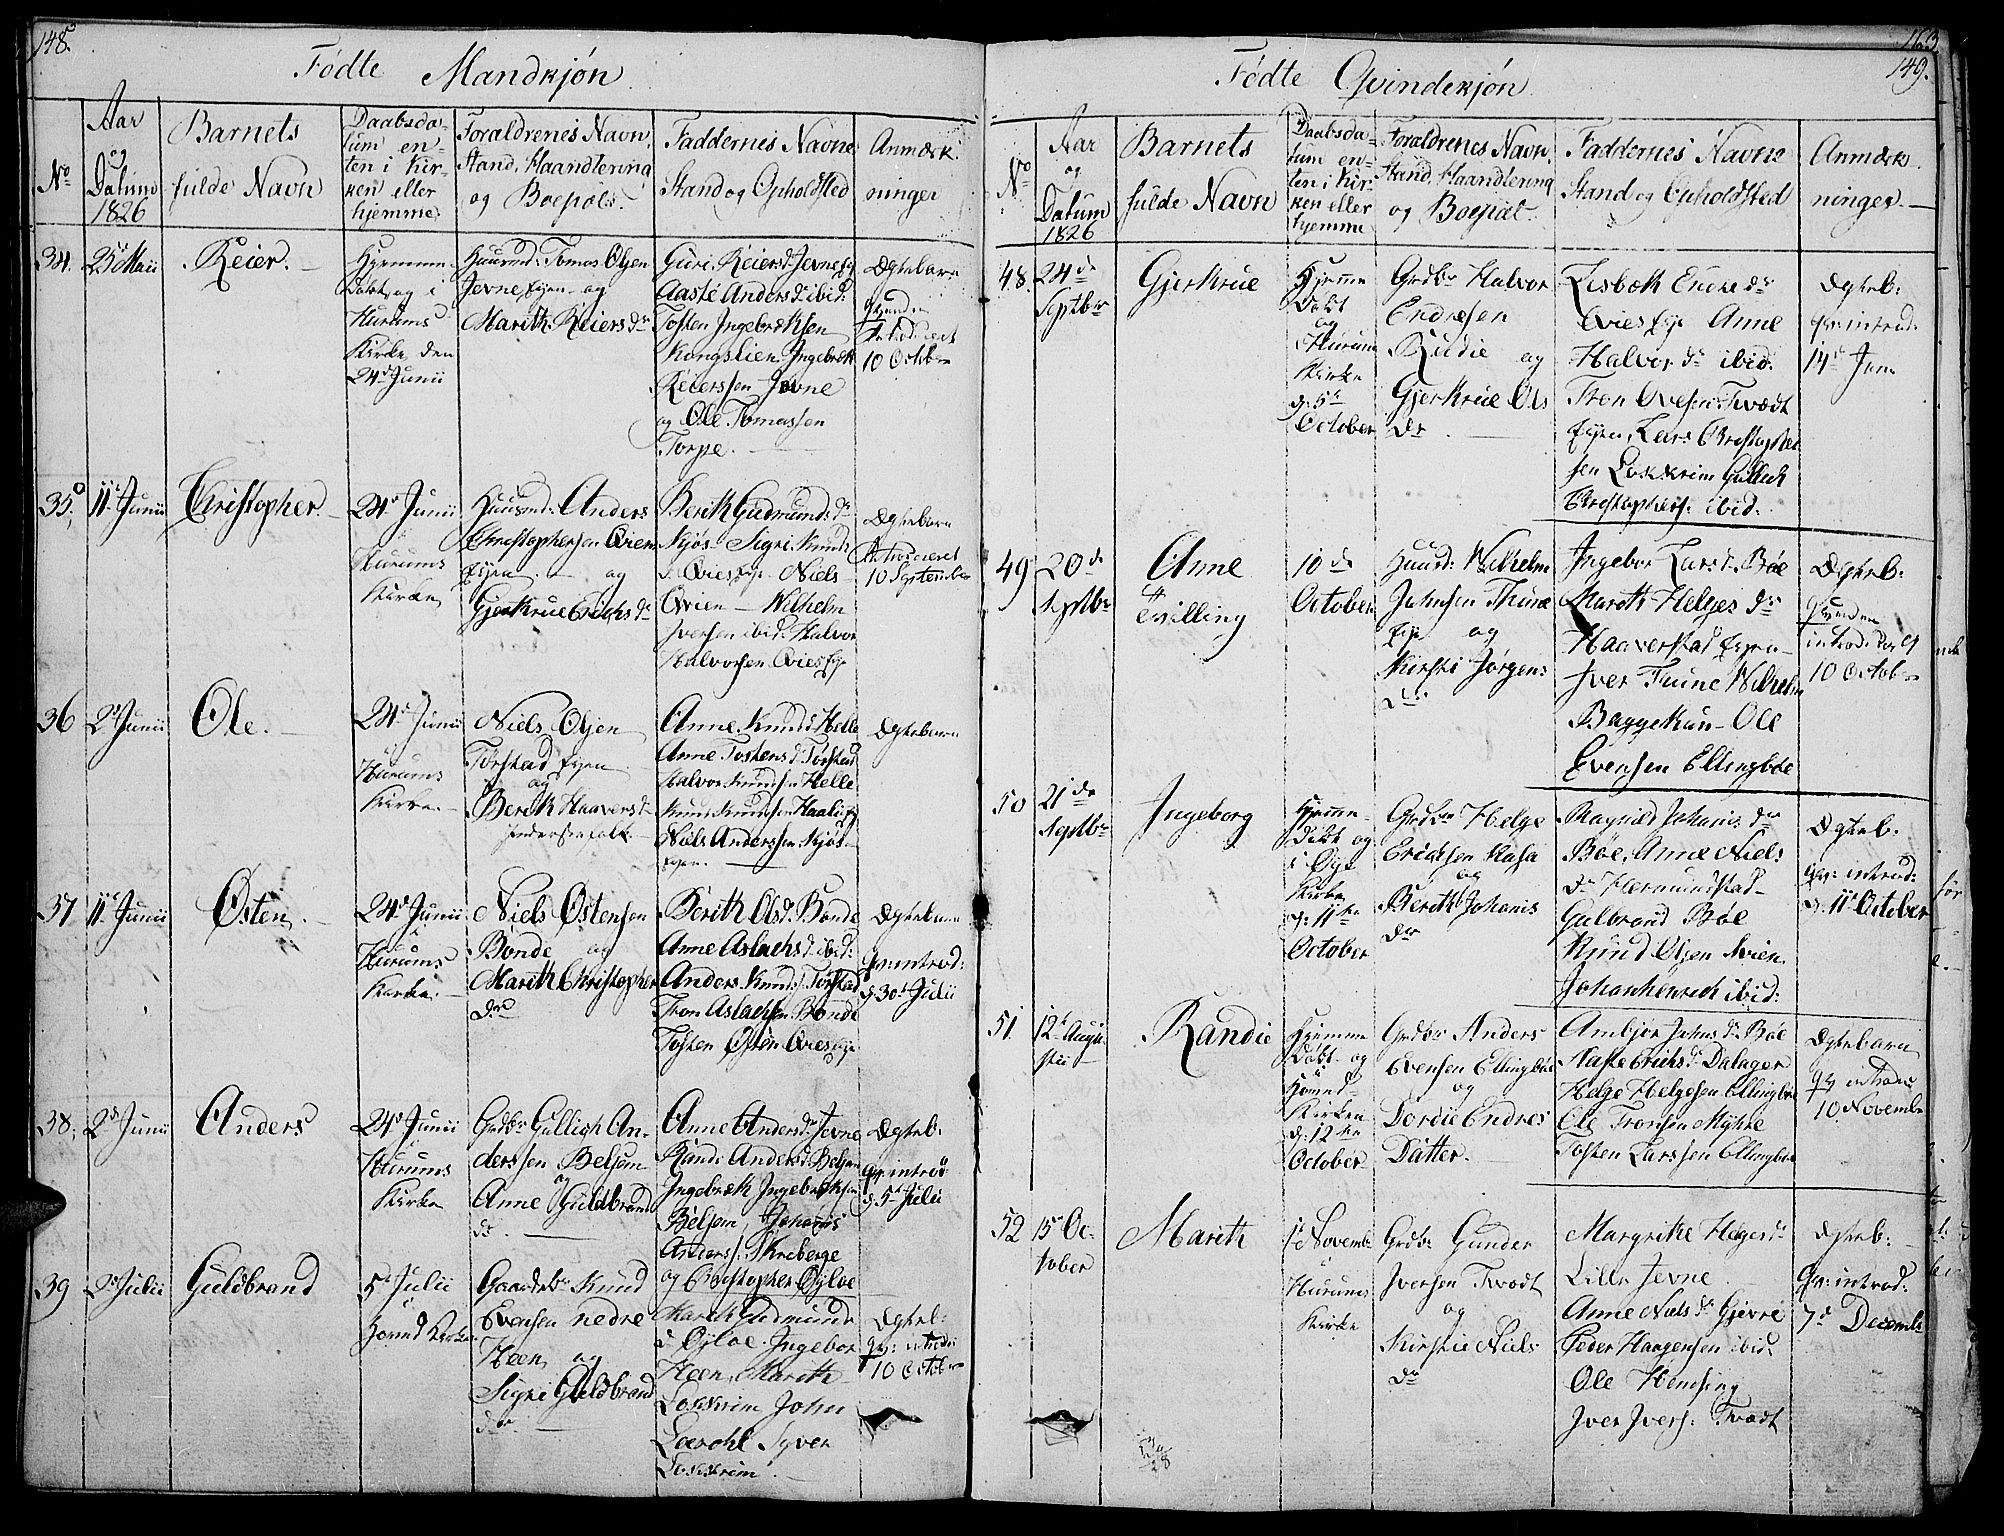 148.
Fødte Mandkjøn
No
Aar
og
Datum
1826
Barnets
fulde Navn
Daabsda-
tum en-
ten i Kir-
ken eller
hjemme
Foraldrenes Navn,
Stand, Haandtering
og Boepæls.
Faddernes Navne
Stand og Opholdsted
Anmærk-
ninger
34.
23de Maii
Reier.
Hjemme
Døbt, og i
Hurums
Kirke den
24de Junii
Huusmd: Tomas Olsen
Jevne Ejen og
Marith Reiersdr
Guri Reiersdr Jevne
Aaste Andersdr ibid:
Tosten Ingebrethsen
Kongslien, Ingebreth
Reierssen Jevne
og Ole Tomassen
Torpe.
Ægtebarn
Introduceret
10 Octobr
35.
11te Junii
Christopher.
24de Junii
Hurums
Kirke
Huusmd: Anders
Christophersen Qvien
Ejen og
Gjertrue Erichsdr
Berith Gudmundsdr
Kjøs Sigri Knuds
dr Qvies Ejer Niels
Qvien Wilhelm
Iversen ibid: Halvor
Halvorsen Qvies Eje
Ægtebarn
Introduceret
10 September
36
2de Junii
Ole.
24de Junii
i
Hurums
Kirke.
Niels Olsen
Tørstad Ejen
og
Berith Haaversdr
Anne Knudsdr Helle
Anne Tostensdr Tørstad
Halvor Knudsen Helle
Knud Knudsen
Niels Anderssen Kjøs
Ejen.
Ægtebarn
37
11te Junii
Østen.
24de Junii
i
Hurums
Kirke.
Niels Østensen
Bonde og
Marith Christopher
dr
Berith Olsdr Bonde
Anne Aslachsdr ibid:
Anders Knuds: Tørstad
Tron Aslachsen Bonde
Tosten Østen Qvies Eje
Ægtebarn
Qv: introd:
d: 30te Julii
38.
2de Junii
Anders
24de Junii
i
Hurums
Kirke
Grdbr Gullich An-
derssen Belsem
og
Anne Guldbrands
dr
Anne Andersdr Jevne
Randi Andersdr Belsem
Ingebreth Ingebrethsen
Belsem, Johanis
Anderss: Skreberge
og Christopher Øyloe
Ægteb:
Qv: introd
d: 5te Julii
39
2de Julii
Guldbrand
5te Julii
i
Hørend Kirke
Gaardbr Knud
Evensen nedre
Heen og
Sigri Guldbrand
dr
Marith Gudmunds
dr Øyloe. Ingebor
Heen, Marith
Lokkrim John
Syver
Lokkrim
Ægteb:
Qv: introd:
10 Octobr
163
149.
Fødte Qvindekjøn
No
Aar
og
Datum
1826
Barnets
fulde Navn
Daabsda-
tum en-
ten i Kir-
ken eller
hjemme
Foraldrenes Navn,
Stand, Haandtering
og Boepæl.
Faddernes Navne
Stand og Opholdsted
Anmærk-
ninger.
48.
24de
Septbr
Gjertrue
Hjemme
Døbt
og
i Hurum
Kirke
d: 5te
October
Grdbr Halvor
Endresen
Rudie og
Gjertrue Ols
dr
Lisbeth Endresdr
Qvies Eje Anne
Halvorsdr ibid.
Tron Ovesen Tvedt
Ejen, Lars Christopher
sen Lokkrim Gullich
Christophers: ibid.
Ægteb:
Qv: introd:
14de Jun.
49
20de
Septbr
Anne
Tvilling
10de
October
Huusd: Wilhelm
Johnsen Thune
Eje og
Kirsti Jørgens
dr
Ingebor Larsdr Bøe
Marith Helgesdr
Haaverstad Ejen
Iver Tuine Wilhelm
Baggethun Ole
Evensen Ellingbøe
Ægteb:
introd:
10 Octobr
50
21de
Septbr
Ingeborg
Hjemme
Døbt og
i Øye
Kirke
d: 11te
October
Grdbr Helge
Erichsen Kasa
og
Berith Johanis
dr
Ragnild Johanisdr
Bøe, Anne Niels
dr Hermundstad
Gulbrand Bøe
Knud Olsen Kvien
Johan Henrich ibid:
Ægteb:
Qv: introd:
d: 11te October
51.
12te Augu
stii
Randie
Hjemme
Døbt og
i
Hørend
Kirken
d: 12te
October
Grdbr Anders
Evensen Ellingbøe
og
Dordie Endres
Datter.
Ambjør Johnsdr Bøe
Aaste Erichsdr Dalager
Helge Helgesen Ellingbøe
Ole Tronsen Mykke
Tosten Larssen Ellingbøe
Ægtebarn
Qv introd:
10 Novembr
52
15de Oc-
tober
Marith
1te Novembr
i
Hurums
Kirke
Grdbr Gunder
Iversen Tvedt
og
Kirstie Niels
dr
Margrithe Helgesdr
Lille Jevne.
Anne Nielsdr Gjevre
Peder Haagensen ibid:
Ole Hemsing
Iver Ivers: Tvedt
Ægteb:
Qv: introd:
7de Decembr